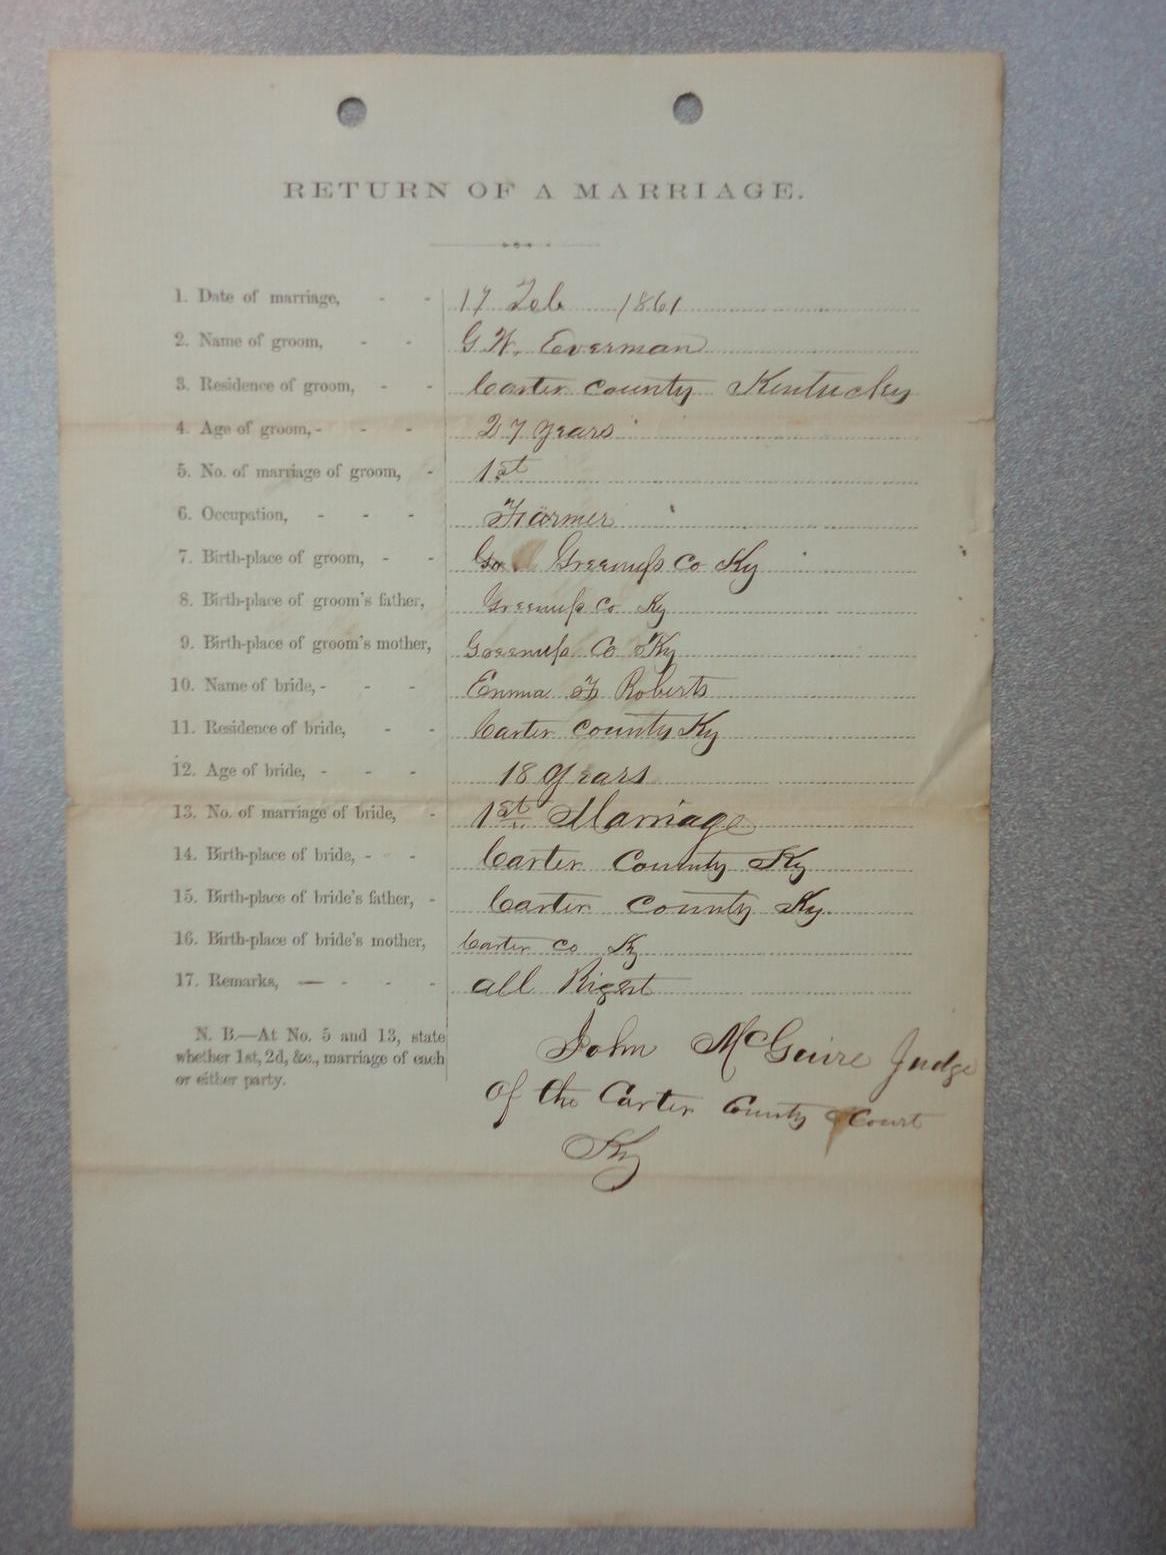 RETURN OF A MARRIAGE.
1. Date of marriage, - - 17 Feb 1861
2. Name of groom, - - G W. Everman
3. Residence of groom, - - Carter County Kentucky
4. Age of groom, - - - 27 years
5. No. of marriage of groom, - 1st
6. Occupation, - - - Farmer
7. Birth-place of groom, - - Greenup Co Ky
8. Birth-place of groom's father, Greenup Co Ky
9. Birth-place of groom's mother, Greenup Co Ky
10. Name of bride, - - - Emma F Roberts
11. Residence of bride, - - Carter County Ky
12. Age of bride, - - - 18 Years
13. No. of marriage of bride, - 1st Marriage
14. Birth-place of bride, - - - Carter County Ky
15. Birth-place of bride's father, - Carter County Ky.
16. Birth-place of bride's mother, Carter Co Ky
17. Remarks, — - - - all Right
N. B.—At No. 5 and 13, state
whether 1st, 2d, &c., marriage of each
or either party.
John McGuire Judge
of the Carter County Court
Ky